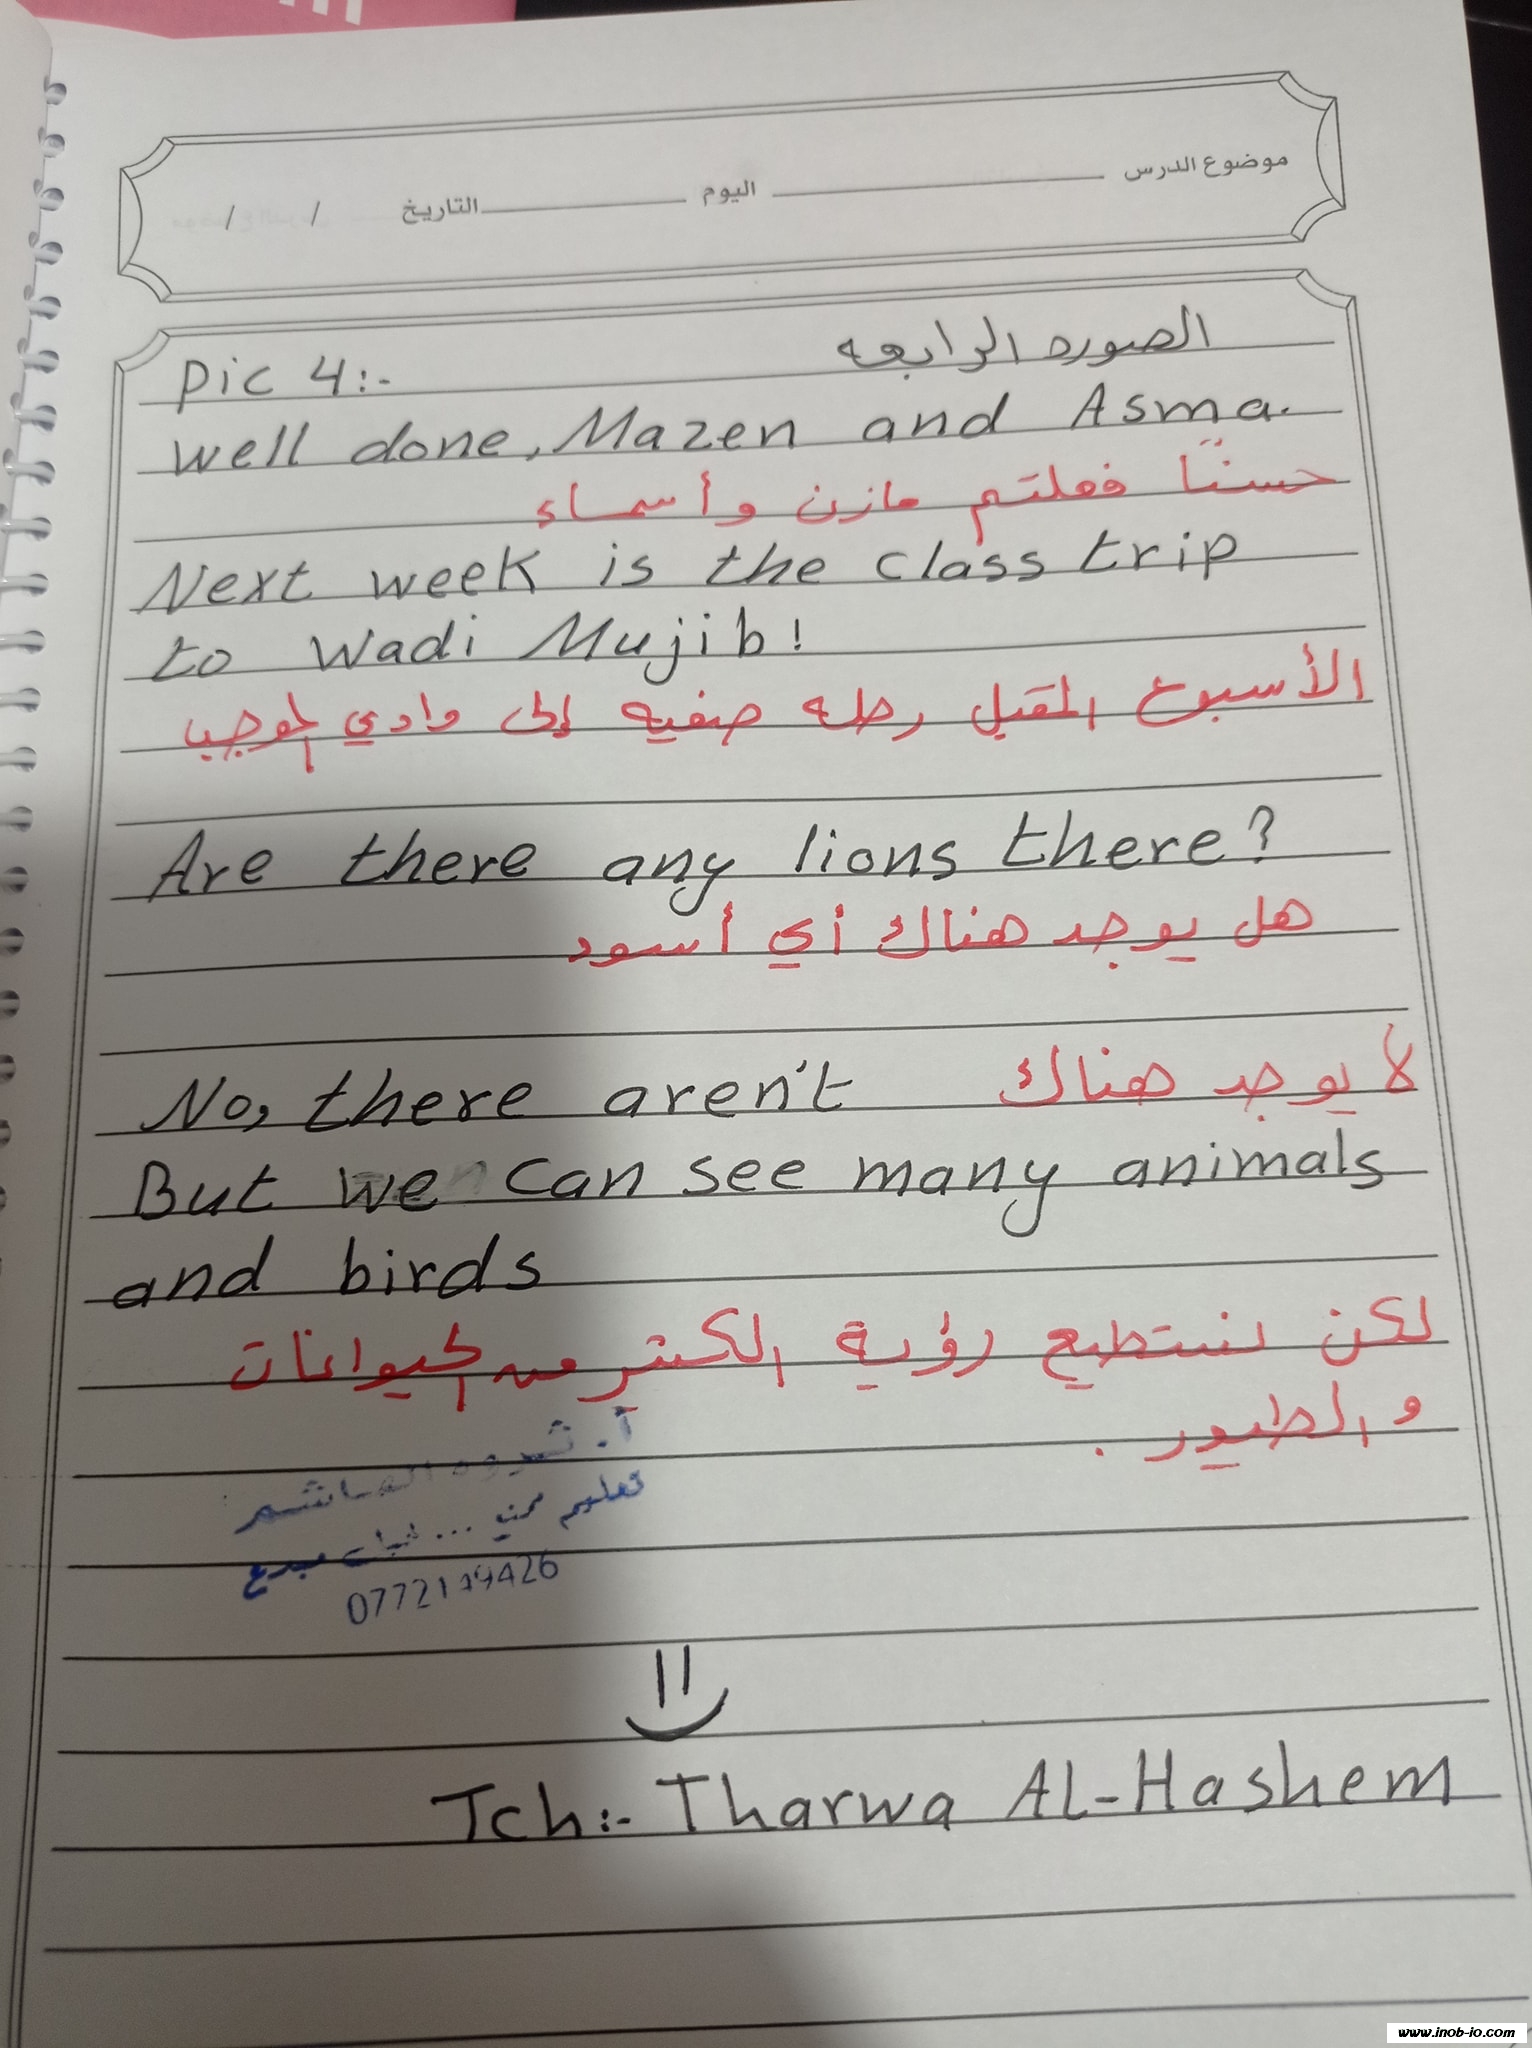 موضوع الدرس اليوم التاريخ / /
Pic 4:- الصوره الرابعه
well done, Mazen and Asma.
حسنًا فعلتم مازن وأسماء
Next week is the class trip
to Wadi Mujib!
الأسبوع المقبل رحله صفيه إلى وادي الموجب
Are there any lions there?
هل يوجد هناك أي أسود
No, there aren't لا يوجد هناك
But we can see many animals
and birds
لكن نستطيع رؤية الكثير من الحيوانات
والطيور.
أ. ثروه الهاشم
تعليم ... مبدع
Tch:- Tharwa AL-Hashem
www.inob-io.com